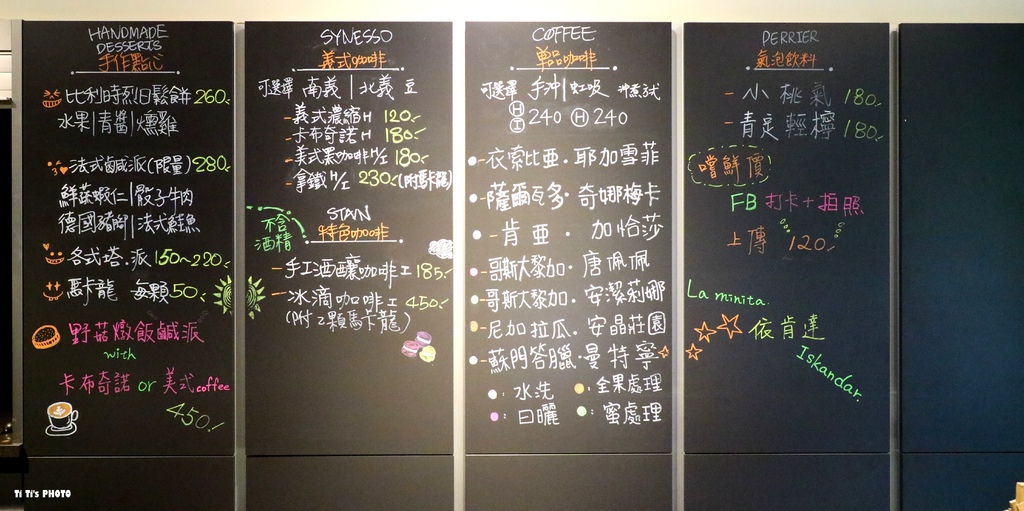 HANDMADE
DESSERTS
手作點心
比利時烈日鬆餅 260.
水果|青醬|燻雞
法式鹹派(限量) 280.
鮮蔬蝦仁|骰子牛肉
德國豬腳|法式鮭魚
各式塔.派 150~220.
馬卡龍 每顆 50.
野菇燉飯鹹派
with
卡布奇諾 or 美式coffee
450.
SYNESSO
義式咖啡
可選擇 南義|北義 豆
-義式濃縮H 120.
-卡布奇諾H 180.
-美式黑咖啡H/I 180.
-拿鐵H/I 230.(附馬卡龍)
不含
酒精
STAN
特色咖啡
-手工酒釀咖啡I 185.
-冰滴咖啡I 450.
(附2顆馬卡龍)
COFFEE
單品咖啡
可選擇 手沖|虹吸 沖煮試
H
I 240 H 240
-衣索比亞.耶加雪菲
-薩爾瓦多.奇娜梅卡
-肯亞.加恰莎
-哥斯大黎加.唐佩佩
-哥斯大黎加.安潔莉娜
-尼加拉瓜.安晶莊園
-蘇門答臘.曼特寧
:水洗 :全果處理
:日曬 :蜜處理
PERRIER
氣泡飲料
-小桃氣 180.
-青定輕檸 180.
嚐鮮價
FB 打卡+拍照
上傳 120.
La minita.
依肯達
Iskandar.
Ti Ti's PHOTO